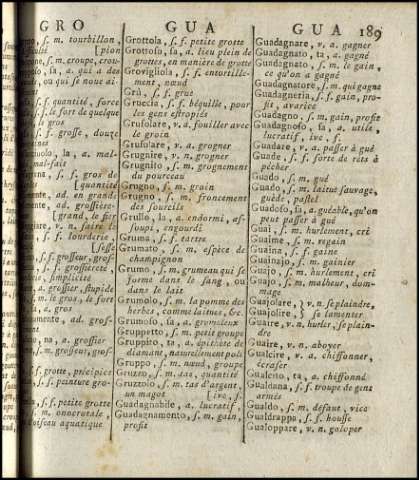 GRO
GUA
GUA 189
, s. m. tourbillon,
[pion
, s. m. croupe, crou-
sa, a. qui a des
ou qui se noue ai-
s. f. quantité, force
s. f. le fort de quelque
gros
s. f. grosse, douze
a. mal-
mal-faite
s. f. gros de
[quantité
ad. en grande
ad. grossière-
[grand, le fier
v. n. faire le
s. f. lourderie
s. f. grosseur, gros-
s. f. grossiereté
simplicité
a. grossier, stupide
s. m. le gros, le fort
sa, a. gros
ad. gros-
na, a. grossier
s. m. grosseur, gros-
s. f. grotte, précipice
s. f. peinture gro-
s. f. petite grotte
s. m. onocrotale,
oiseau aquatique
Grottola, s. f. petite grotte
Grottoso, sa, a. lieu plein de
grottes, en manière de grotte
Grovigliola, s. f. entortille-
ment, nœud
Grù, s. f. grue
Gruccia, s. f. béquille, pour
les gens estropiés
Grufolare, v. a. fouiller avec
le groin
Grufolare, v. a. grogner
Grugnire, v. n. grogner
Grugnito, s. m. grognement
du pourceau
Grugno, s. m. groin
Grugno, s. m. froncement
des sourcils
Grullo, la, a. endormi, as-
soupi, engourdi
Gruma, s. f. tartre
Grumato, s. m. espèce de
champignon
Grumo, s. m. grumeau qui se
forme dans le sang, ou
dans le lait
Grumolo, s. m. la pomme des
herbes, comme laitues, &c.
Grumoso, sa, a. grumeleux
Gruppetto, s. m. petit groupe
Gruppito, ta, a. épithete de
diamant, naturellement poli
Gruppo, s. m. nœud, groupe
Gruzzo, s. m. tas, quantité
Gruzzolo, s. m. tas d'argent,
un magot [ive, s.
Guadagnabile, a. lucratif,
Guadagnamento, s. m. gain,
profit
Guadagnare, v. a. gagner
Guadagnato, ta, a. gagné
Guadagnato, s. m. le gain,
ce qu'on a gagné
Guadagnatore, s. m. qui gagne
Guadagneria, s. f. gain, pro-
fit, avarice
Guadagno, s. m. gain, profit
Guadagnoso, sa, a. utile,
lucratif, ive, s.
Guadare, v. a. passer à gué
Guade, s. f. sorte de rets à
pêcher
Guado, s. m. gué
Guado, s. m. laitue sauvage,
guède, pastel
Guadoso, sa, a. guéable, qu'on
peut passer à gué
Guai, s. m. hurlement, cri
Guaime, s. m. regain
Guaina, s. f. gaine
Guainajo, s. m. gainier
Guajo, s. m. hurlement, cri
Guajo, s. m. malheur, dom-
mage
Guajolare, } v. n. se plaindre,
Guajolire, } se lamenter
Guaire, v. n. hurler, se plain-
dre
Guaire, v. n. aboyer
Gualcire, v. a. chiffonner,
écraser
Gualcito, ta, a. chiffonné
Gualdana, s. f. troupe de gens
armés
Gualdo, s. m. défaut, vice
Gualdrappa, s. f. housse
Gualoppare, v. n. galoper